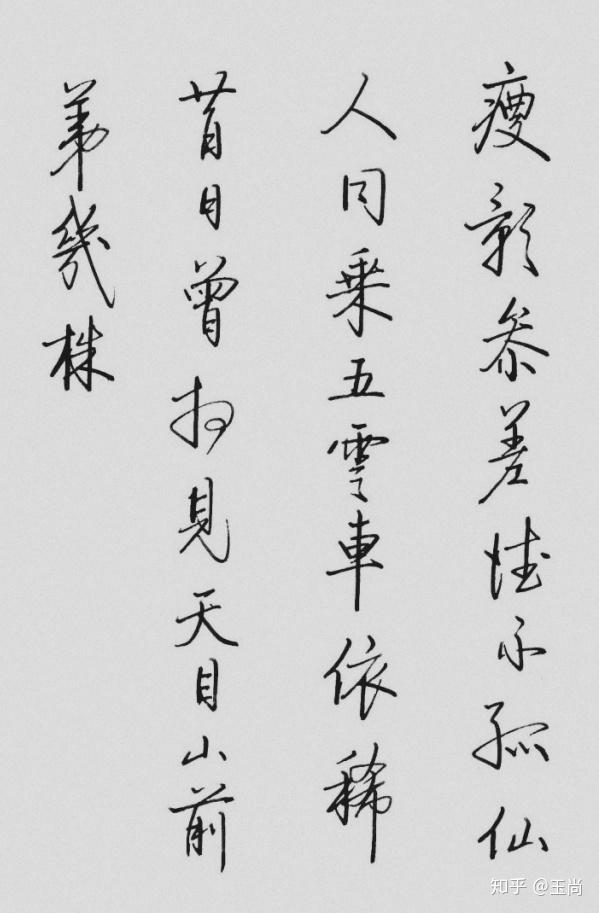 瘦影參差性不孤仙
人同乘五雲車依稀
昔日曾相見天目山前
第幾株
知乎 @王尚